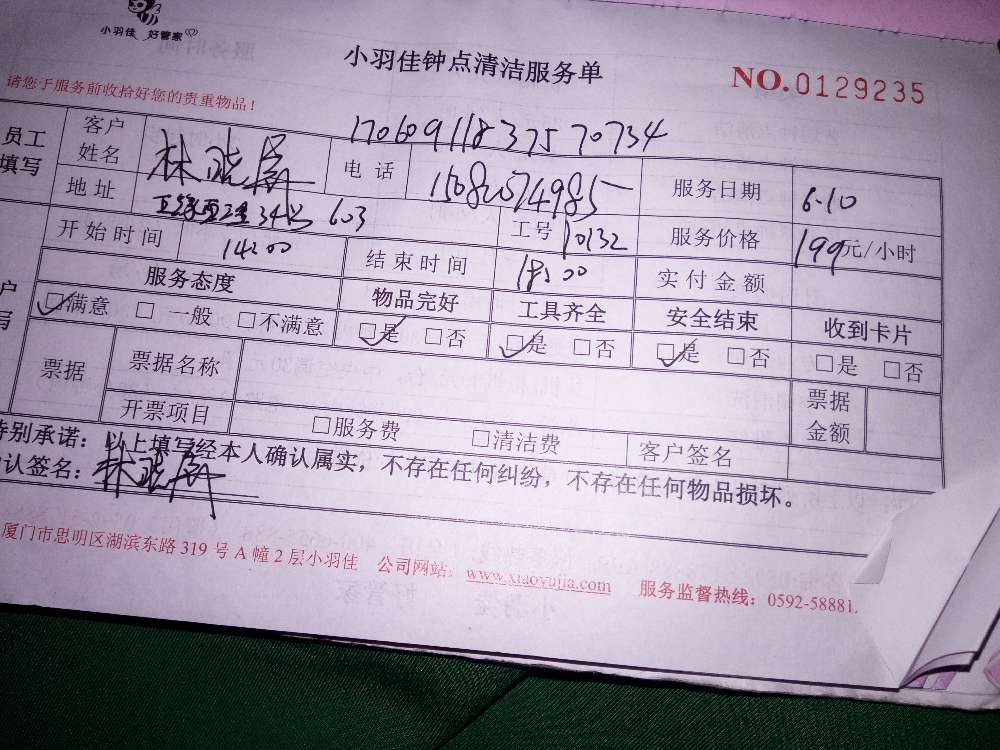 小羽佳 好管家
小羽佳钟点清洁服务单 NO.0129235
请您于服务前收拾好您的贵重物品！
17060911837570734
员工填写 客户姓名 林晓 电话 服务日期 6.10
地址 34 603 工号 10132 服务价格 199元/小时
开始时间 14:00 结束时间 18:00 实付金额
服务态度 物品完好 工具齐全 安全结束 收到卡片
户 写 ☑满意 □一般 □不满意 ☑是 □否 ☑是 □否 ☑是 □否 □是 □否
票据 票据名称 票据金额
开票项目 □服务费 □清洁费 客户签名
特别承诺：以上填写经本人确认属实，不存在任何纠纷，不存在任何物品损坏。
认签名：林晓
厦门市思明区湖滨东路319号A幢2层小羽佳 公司网站：www.xiaoyujia.com 服务监督热线：0592-58881.